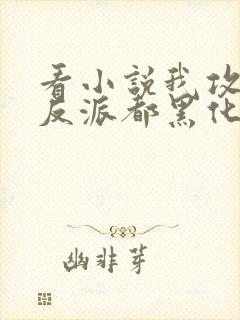 看小説我攻
反派都黑化
幽非芽